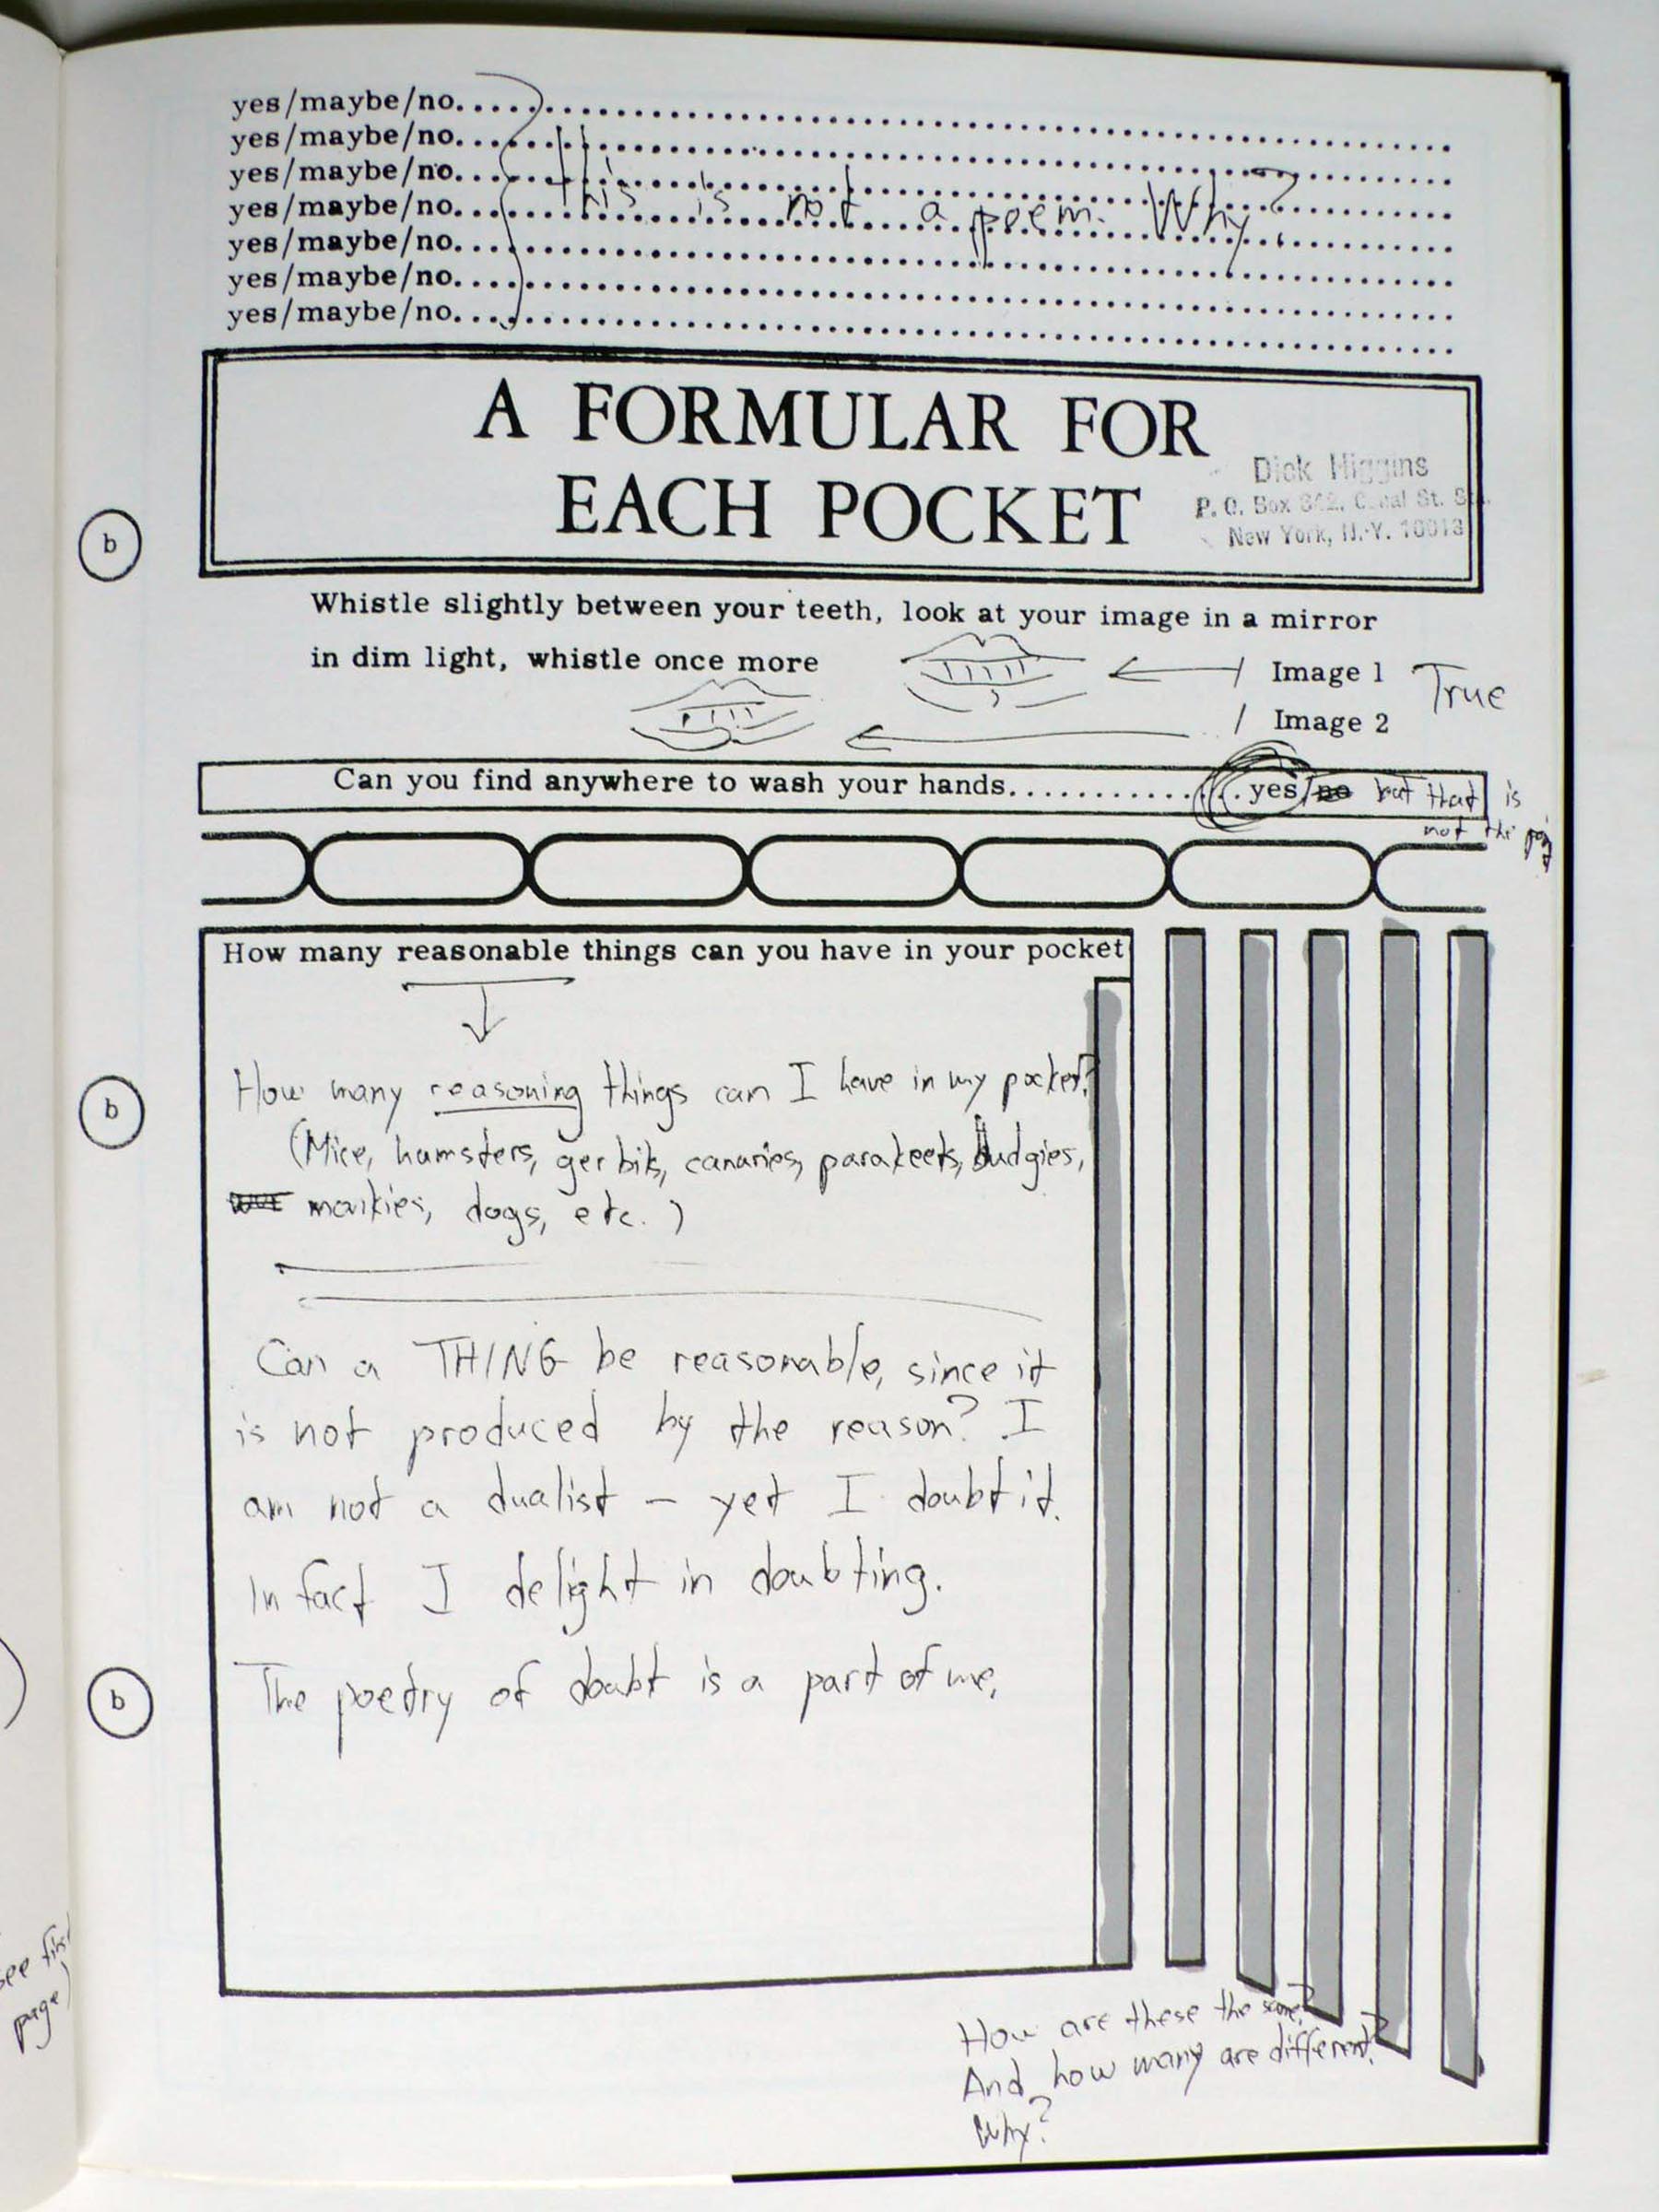 yes/maybe/no................................................
yes/maybe/no................................................
yes/maybe/no................................................
yes/maybe/no................................................
yes/maybe/no................................................
yes/maybe/no................................................
yes/maybe/no................................................
this is not a poem. Why?
A FORMULAR FOR
EACH POCKET
Dick Higgins
P. O. Box 842, Canal St. Sta.
New York, N.Y. 10013
b
Whistle slightly between your teeth, look at your image in a mirror
in dim light, whistle once more
/ Image 1 True
/ Image 2
Can you find anywhere to wash your hands................yes/no but that is
not the
How many reasonable things can you have in your pocket
How many reasoning things can I have in my pocket?
b
(Mice, hamsters, gerbils, canaries, parakeets, budgies,
monkies, dogs, etc.)
Can a THING be reasonable, since it
is not produced by the reason? I
am not a dualist – yet I doubt it.
In fact I delight in doubting.
The poetry of doubt is a part of me,
b
see first
page)
How are these the same?
And how many are different?
Why?